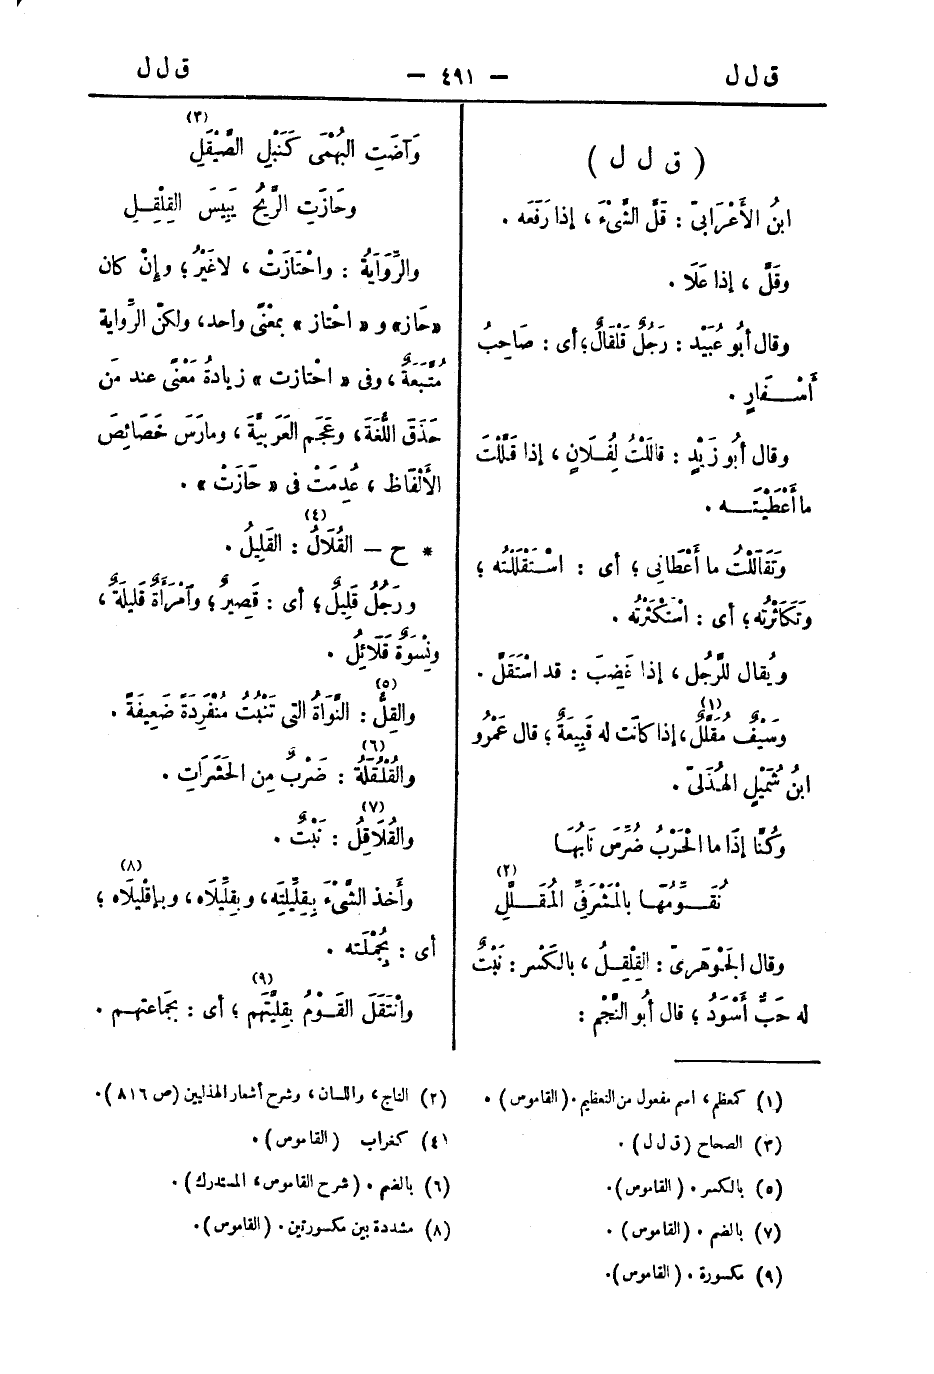 ق ل ل — ٤٩١ — ق ل ل
( ق ل ل )
ابنُ الأَعْرَابىّ : قَلَّ الشَّىْءَ ، إذا رَفَعَه .
وقَلَّ ، إذا عَلَا .
وقال أبُو عُبَيْد : رَجُلٌ قَلْقَالٌ ؛ أى : صَاحِبُ
أَسْـفَارٍ .
وقال أبُو زَيْدٍ : قالَلْتُ لِفُـلَانٍ ، إذا قَلَّلْتَ
ما أَعْطَيْتَـه .
وتَقَالَلْتُ ما أَعْطَانِى ؛ أى : اسْـتَقْلَلْتُه ؛
وتَكَاثَرْتُه ؛ أى : اسْتَكْثَرْتُه .
ويُقال للرَّجُل ، إذا غَضِبَ : قد اسْتَقَلَّ .
وسَيْفٌ مُقَلَّلٌ (١) ، إذا كانَت له قَبِيعَةٌ ؛ قال عَمْرُو
ابنُ شُمَيْلٍ الهُذَلىّ .
وكُنَّا إذَا ما الحَرْبُ ضُرِّسَ نَابُهَـا
نُقَـوِّمُهَـا بالمَشْرَفىِّ المُقَـلَّلِ (٢)
وقال الجَوْهَرىّ : القِلْقِـلُ ، بالكَسْر : نَبْتٌ
له حَبٌّ أَسْوَدُ ؛ قال أَبُو النَّجْم :
وَآضَتِ البُهْمَى كَنَبْلِ الصَّيْقَلِ (٣)
وحَازَتِ الرِّيحُ يَبِيسَ القِلْقِـلِ
والرِّوَايَةُ : واحْتَازَتْ ، لاغَيْرُ ؛ وإنْ كان
«حَاز» و « احْتاز » بمعْنًى واحد، ولكنّ الرِّواية
مُتَّبَعَةٌ ، وفى « احْتازت » زيادةُ مَعْنًى عند مَن
حَذَقَ اللُّغَةَ ، وعَجَم العَرَبِيَّةَ ، ومارَسَ خَصَائِصَ
الأَلْفَاظ ، عُدِمَتْ فى « حَازَتْ » .
* ح — القُلَالُ (٤) : القَلِيلُ .
ورَجُلٌ قَلِيلٌ ؛ أى : قَصِيرٌ ؛ وٱمْرَأَةٌ قَلِيلَةٌ ،
ونِسْوَةٌ قَلَائِلُ .
والقِلُّ (٥) : النَّوَاةُ التى تَنْبُتُ مُنْفَرِدَةً ضَعِيفَةً .
والقُلْقُلَةُ (٦) : ضَرْبٌ مِن الحَشَرَاتِ .
والقُلَاقِلُ (٧) : نَبْتٌ .
وأَخذ الشَّىْءَ بِقِلِّيلَتِه ، وبقِلِّيلَاه (٨) ، وبإقْلِيلَاه ؛
أى : بجُمْلَته .
وانْتَقَلَ القَـوْمُ بقِلِيَّتِهم (٩) ؛ أى : بجَمَاعتهـم .
(١) كمعظم ، اسم مفعول من التعظيم . ( القاموس ) .
(٢) التاج ، واللسان ، وشرح أشعار الهذليين ( ص ٨١٦ ) .
(٣) الصحاح ( ق ل ل ) .
(٤) كغراب ( القاموس ) .
(٥) بالكسر . ( القاموس ) .
(٦) بالضم . ( شرح القاموس ، المستدرك ) .
(٧) بالضم . ( القاموس ) .
(٨) مشددة بين مكسورتين . ( القاموس ) .
(٩) مكسورة . ( القاموس ) .